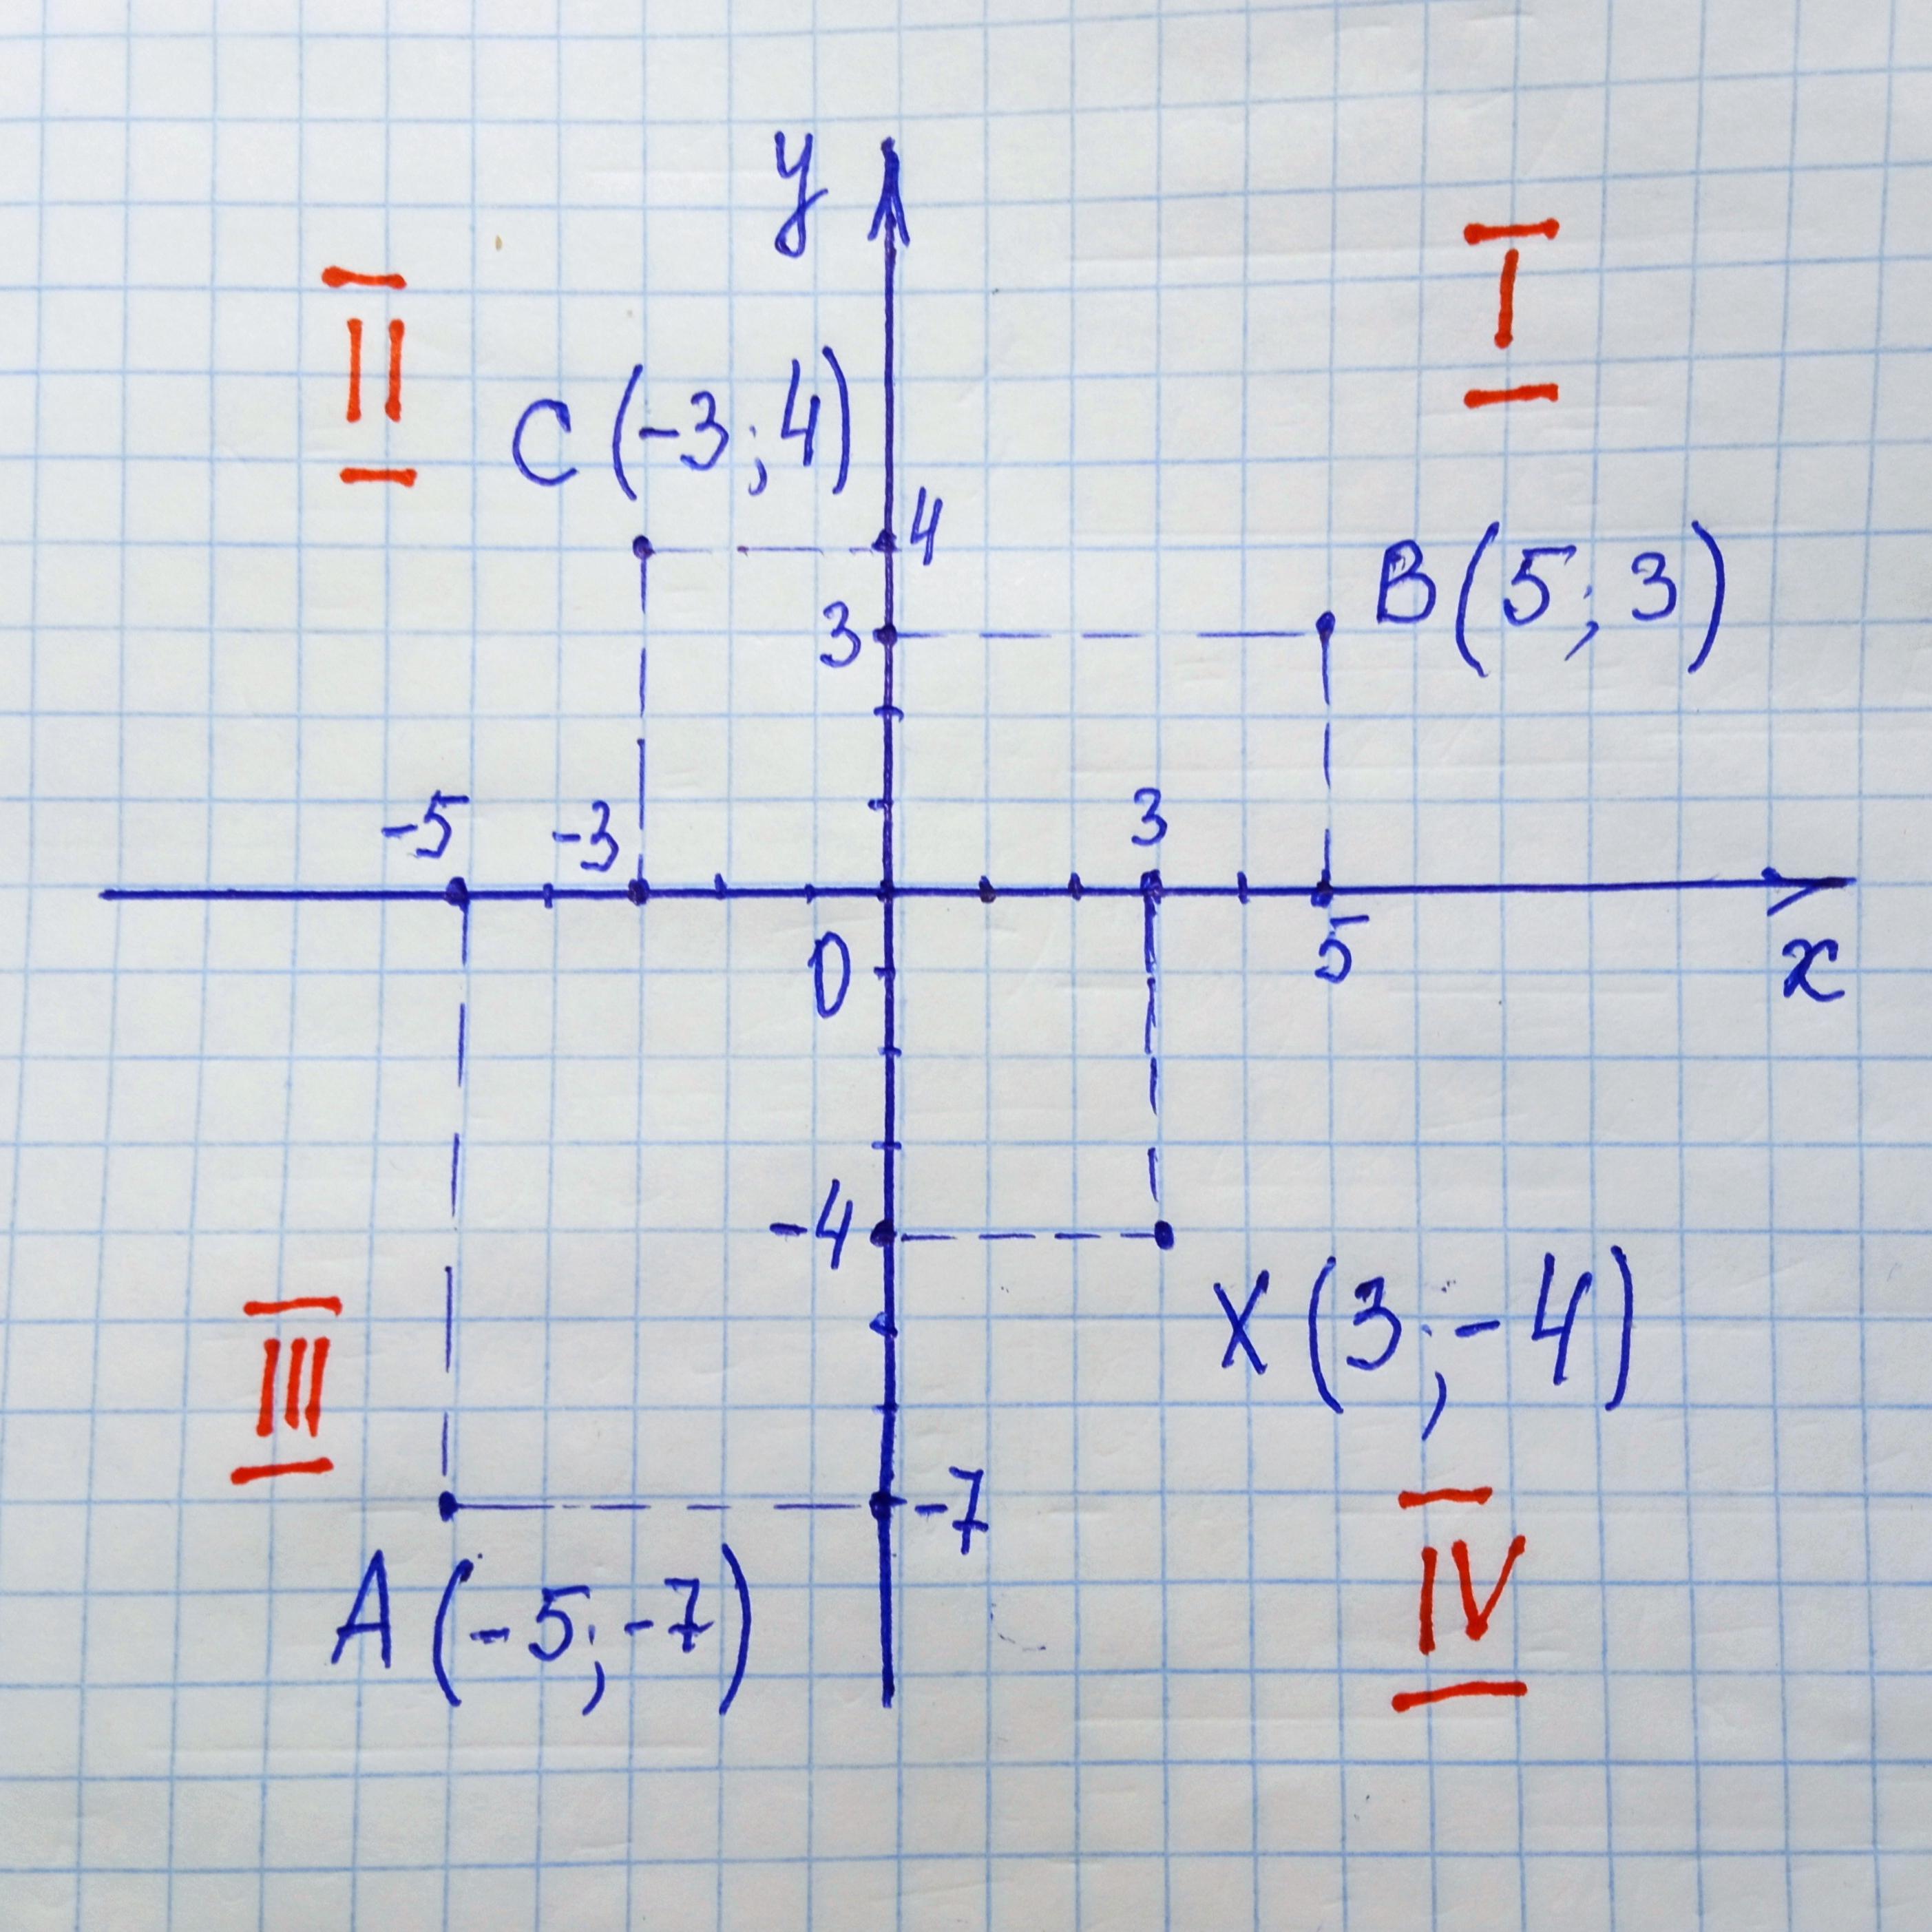 y
I
II
C(-3;4)
4
B(5;3)
3
-5
-3
3
0
5
x
-4
III
X(3;-4)
-7
IV
A(-5;-7)